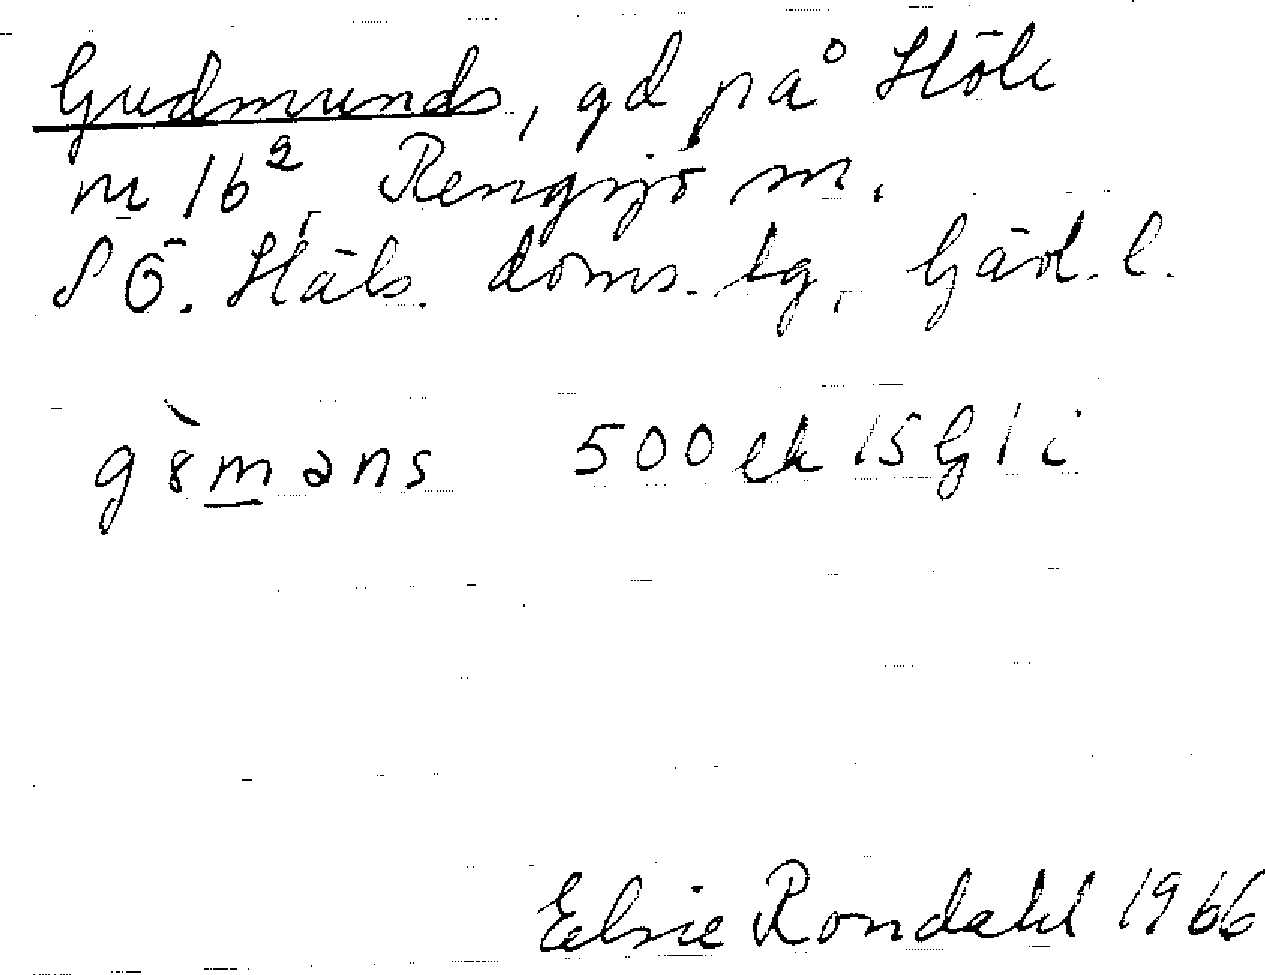 Gudmunds, gd på Höle
n 1b², Rengsjö sn.
SÖ. Häls. doms. tg, Gävl. l.
gèmans 500 ek 15 G 1 i
Elsie Rondahl 1966